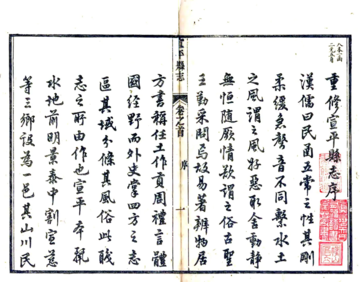 重修宣平縣志序
漢儒曰民函五常之性其剛
柔緩急聲音不同繫水土
之風謂之風好惡取舍動靜
無恒隨厥情欲謂之俗古聖
王勤采問焉故易著辨物居
宣平縣志
卷之首
序
一
方書稱任土作貢周禮言體
國經野而外史掌四方之志
區其域分條其風俗此職
志之所由作也宣平本麗
水地前明景泰中割宣慈
等三鄉設為一邑其山川民